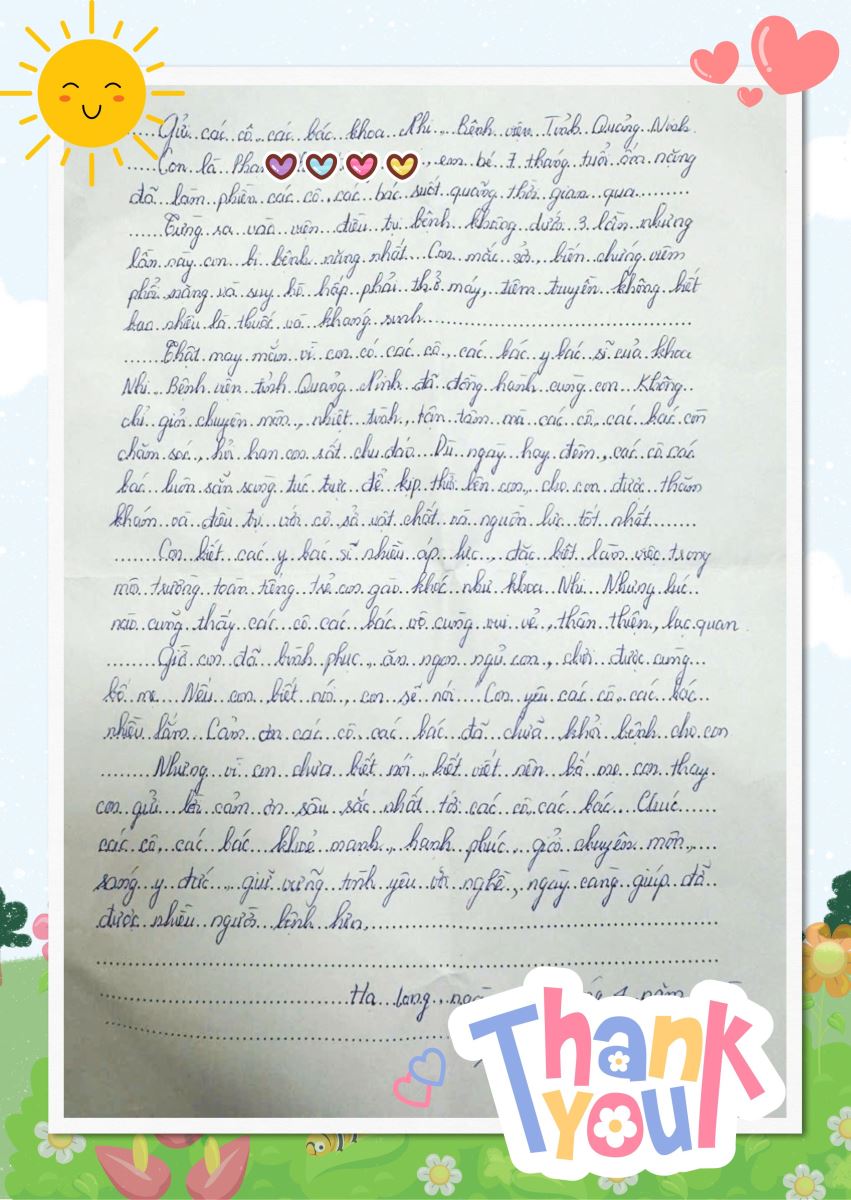 Gửi các cô, các bác khoa Nhi, Bệnh viện Tỉnh Quảng Ninh
Con là Phan , em bé 7 tháng tuổi ốm nặng
đã làm phiền các cô, các bác suốt quãng thời gian qua
Từng ra vào viện điều trị bệnh không dưới 3 lần nhưng
lần này con bị bệnh nặng nhất. Con mắc sởi, biến chứng viêm
phổi nặng và suy hô hấp phải thở máy, tiêm truyền không biết
bao nhiêu là thuốc và kháng sinh
Thật may mắn vì con có các cô, các bác y bác sĩ của khoa
Nhi Bệnh viện tỉnh Quảng Ninh đã đồng hành cùng con. Không
chỉ giỏi chuyên môn, nhiệt tình, tận tâm mà các cô, các bác còn
chăm sóc, hỏi han con rất chu đáo. Dù ngày hay đêm, các cô các
bác luôn sẵn sàng túc trực để kịp thời bên con, cho con được thăm
khám và điều trị với cơ sở vật chất và nguồn lực tốt nhất
Con biết các y bác sĩ nhiều áp lực, đặc biệt làm việc trong
môi trường toàn tiếng trẻ con gào khóc như khoa Nhi. Nhưng lúc
nào cũng thấy các cô các bác vô cùng vui vẻ, thân thiện, lạc quan
Giờ con đã bình phục, ăn ngon ngủ ngon, chơi được cùng
bố mẹ. Nếu con biết nói, con sẽ nói "Con yêu các cô, các bác
nhiều lắm. Cảm ơn các cô, các bác đã chữa khỏi bệnh cho con
Nhưng vì con chưa biết nói, biết viết nên bố mẹ con thay
con gửi lời cảm ơn sâu sắc nhất tới các cô, các bác. Chúc
các cô, các bác khoẻ mạnh, hạnh phúc, giỏi chuyên môn,
sáng y đức, giữ vững tình yêu với nghề, ngày càng giúp đỡ
được nhiều người bệnh hơn.
Hạ Long, 
Thank
you